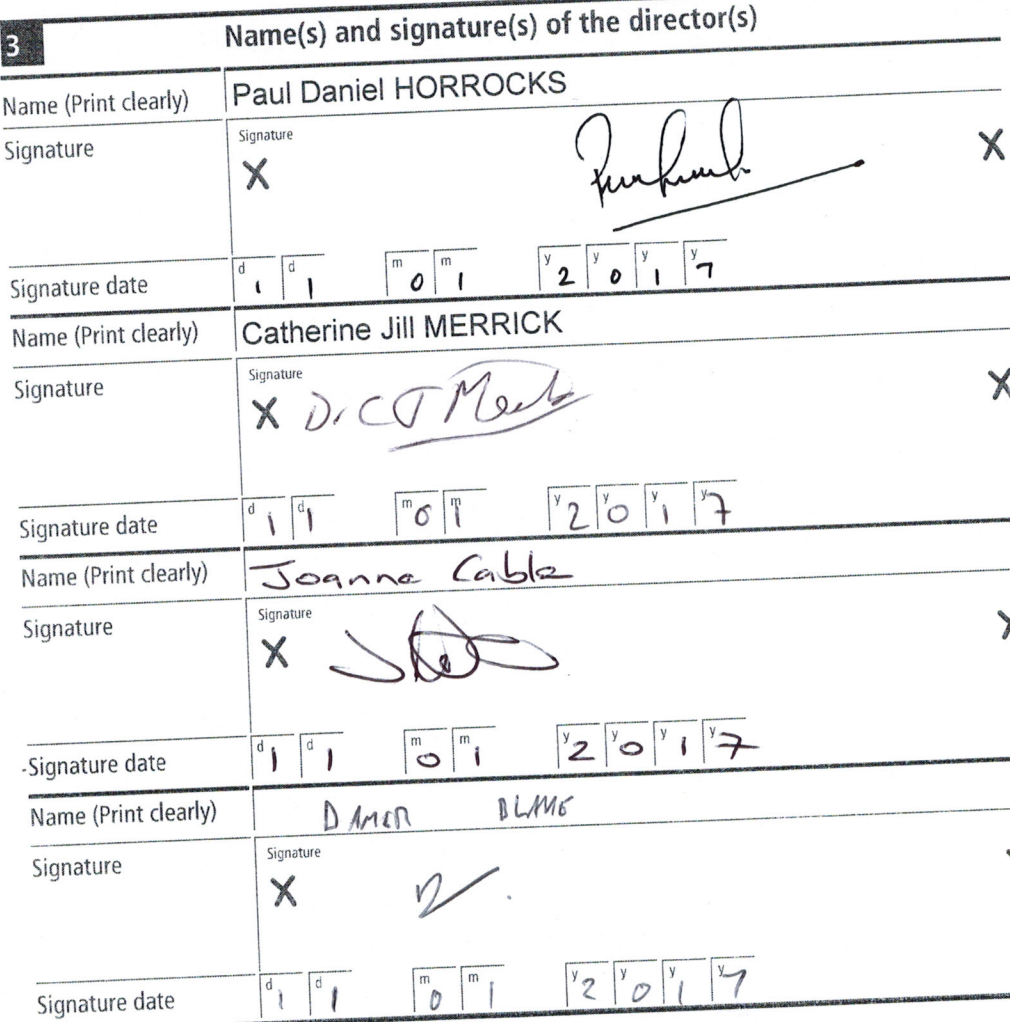 3 Name(s) and signature(s) of the director(s)
Name (Print clearly) Paul Daniel HORROCKS
Signature Signature
X X
Signature date d 1 d 1 m 0 m 1 y 2 y 0 y 1 y 7
Name (Print clearly) Catherine Jill MERRICK
Signature Signature
X Dr C J X
Signature date d 1 d 1 m 0 m 1 y 2 y 0 y 1 y 7
Name (Print clearly) Joanne Cable
Signature Signature
X
Signature date d 1 d 1 m 0 m 1 y 2 y 0 y 1 y 7
Name (Print clearly) DAMER BLAKE
Signature Signature
X
Signature date d 1 d 1 m 0 m 1 y 2 y 0 y 1 y 7